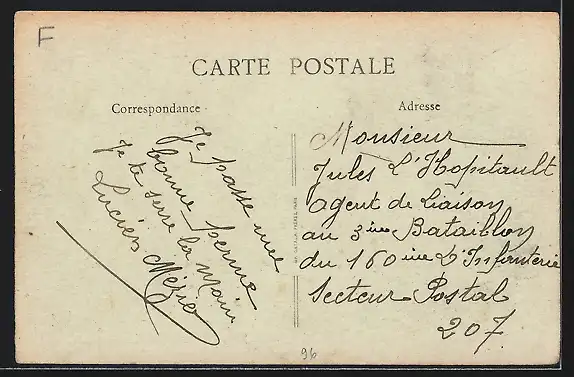 F
CARTE POSTALE
Correspondance
Adresse
Je passe une
bonne perme
Je te serre la main
Lucien
Monsieur
Jules L'Hopitault
Agent de Liaison
au 3ième Bataillon
du 160ième D'Infanterie
Secteur Postal
207
96